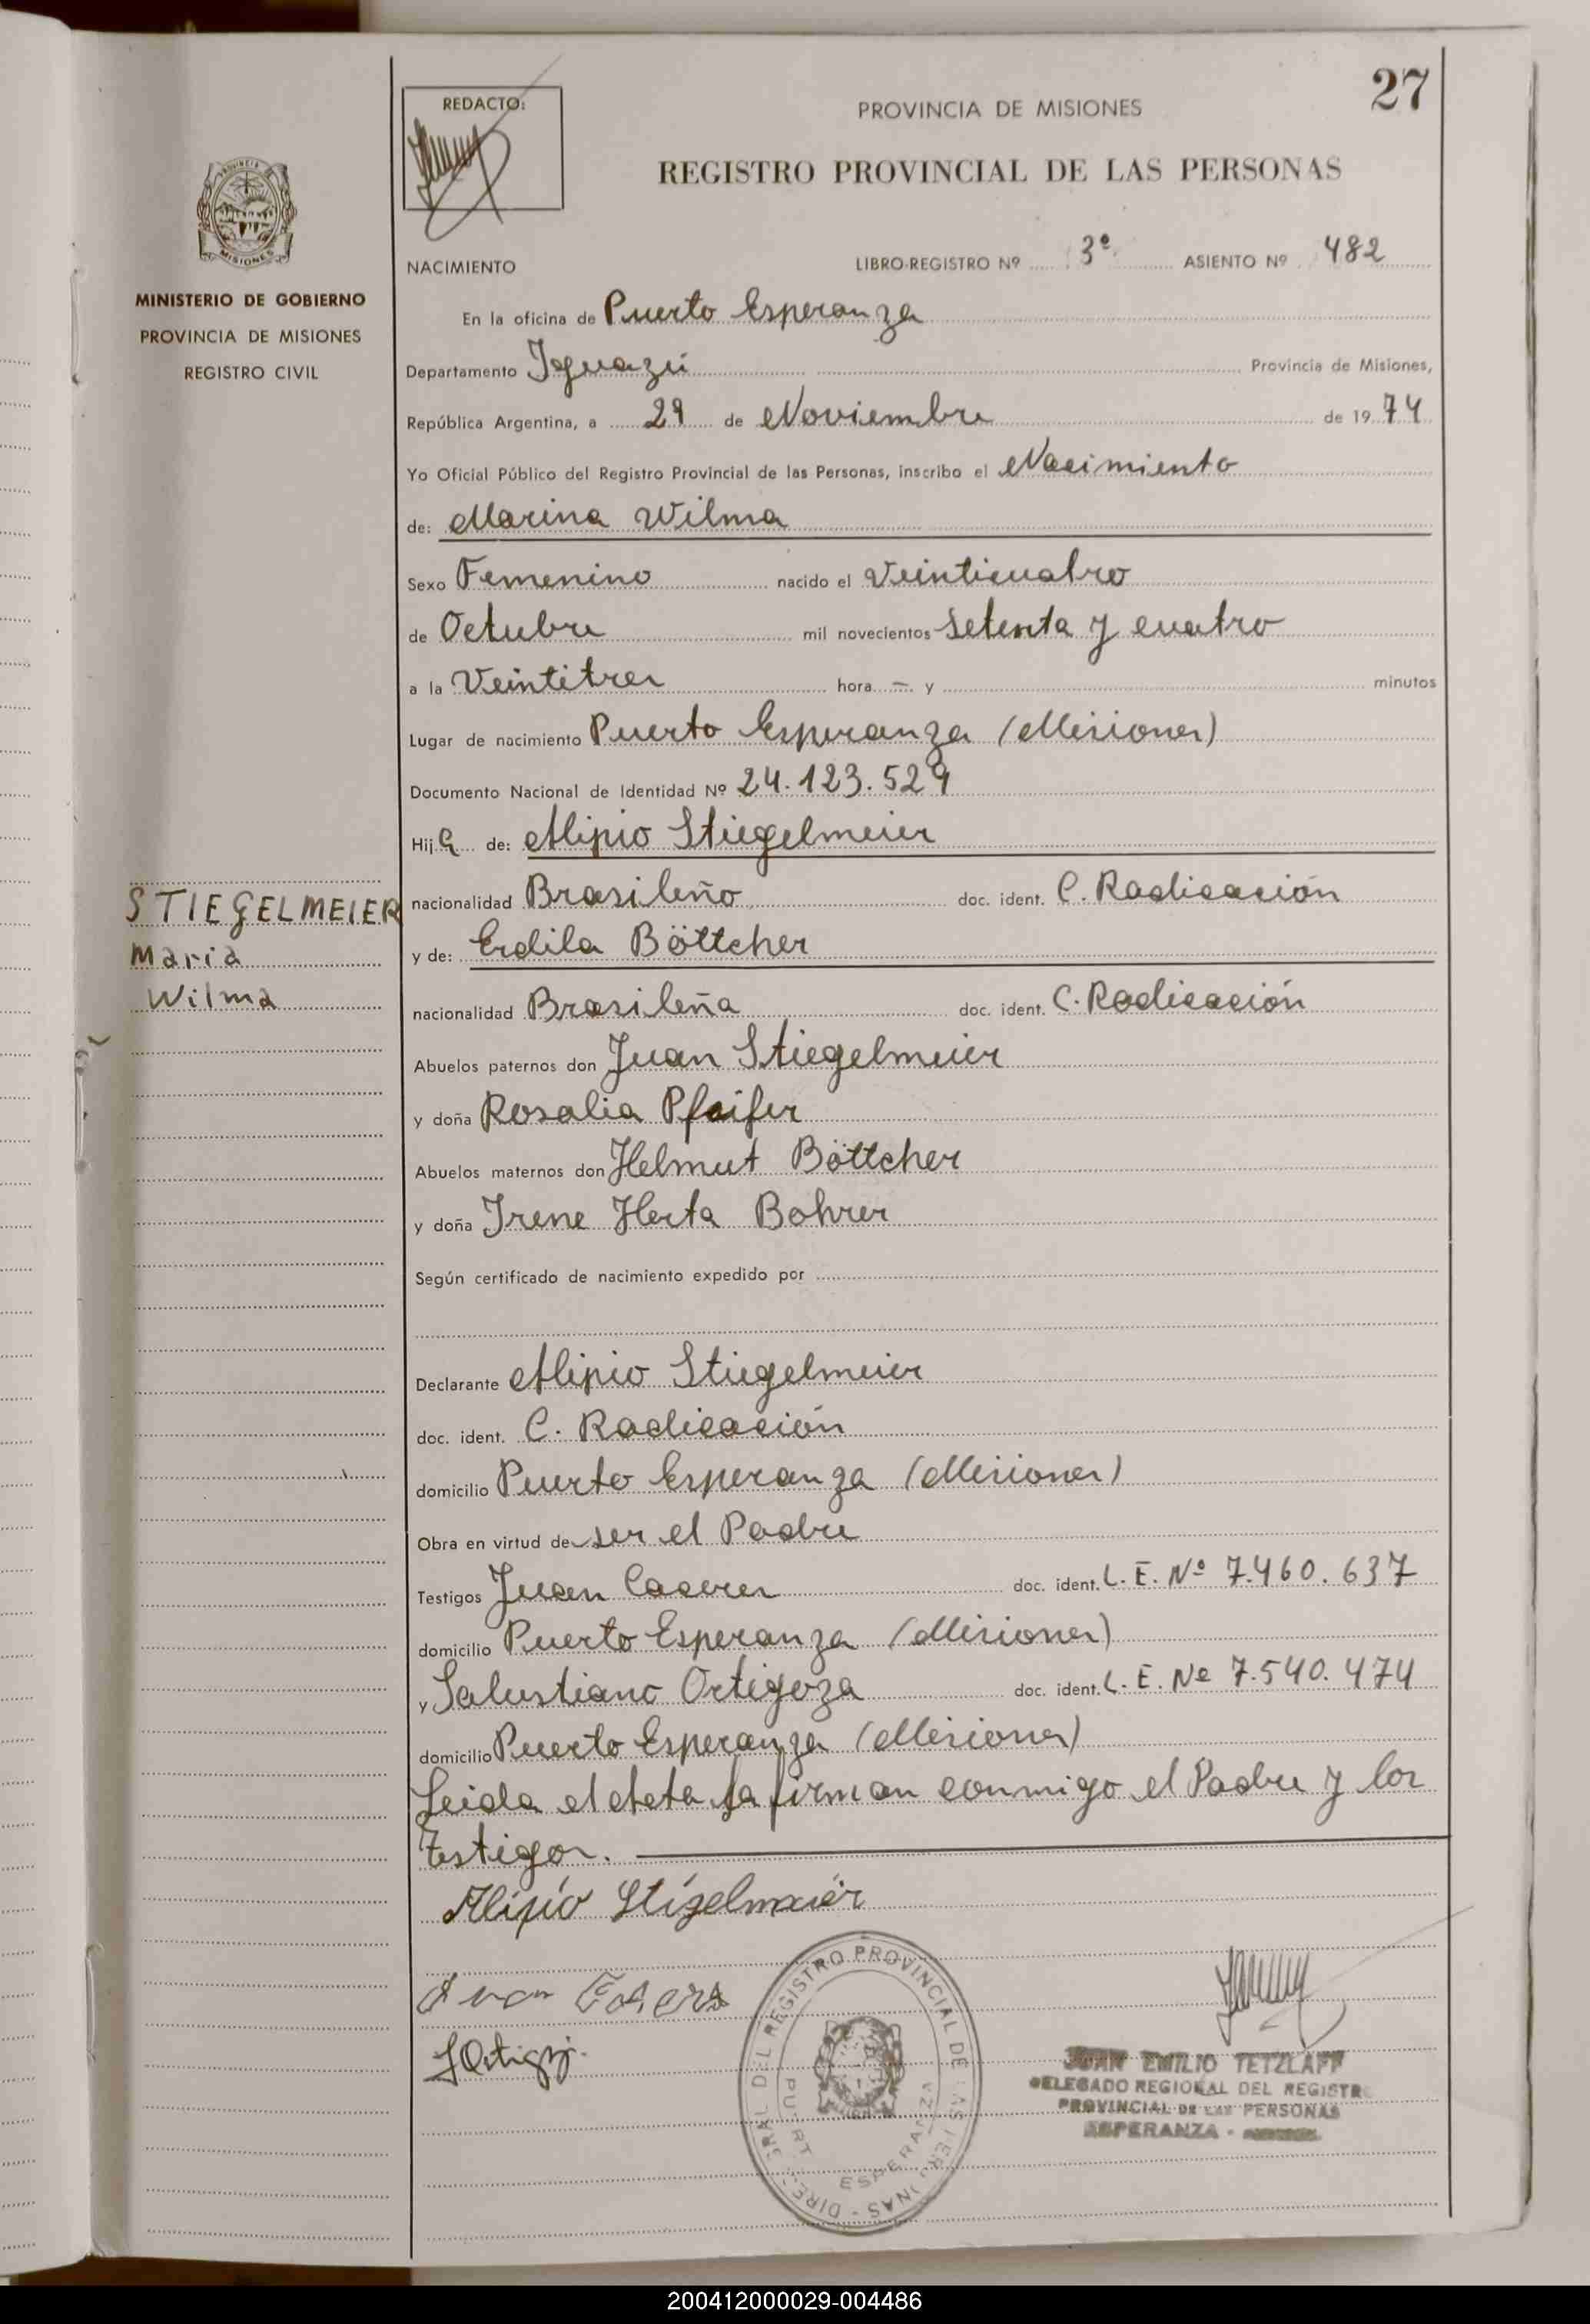 27
REDACTO:
PROVINCIA DE MISIONES
REGISTRO PROVINCIAL DE LAS PERSONAS
MISIONES
MINISTERIO DE GOBIERNO
PROVINCIA DE MISIONES
REGISTRO CIVIL
NACIMIENTO LIBRO-REGISTRO Nº 3º ASIENTO Nº 482
En la oficina de Puerto Esperanza
Departamento Iguazú Provincia de Misiones,
República Argentina, a 29 de Noviembre de 1974
Yo Oficial Público del Registro Provincial de las Personas, inscribo el Nacimiento
de: Marina Wilma
Sexo Femenino nacido el Veinticuatro
de Octubre mil novecientos setenta y cuatro
a la Veintitres hora — y minutos
Lugar de nacimiento Puerto Esperanza (Misiones)
Documento Nacional de Identidad Nº 24.123.529
Hija de: Alipio Stiegelmeier
nacionalidad Brasileño doc. ident. C. Radicación
y de: Erdila Böttcher
nacionalidad Brasileña doc. ident. C. Radicación
STIEGELMEIER
Maria
Wilma
Abuelos paternos don Juan Stiegelmeier
y doña Rosalia Pfeifer
Abuelos maternos don Helmut Böttcher
y doña Irene Herta Bohrer
Según certificado de nacimiento expedido por
Declarante Alipio Stiegelmeier
doc. ident. C. Radicación
domicilio Puerto Esperanza (Misiones)
Obra en virtud de ser el Padre
Testigos Juan Caceres doc. ident. L. E. Nº 7.460.637
domicilio Puerto Esperanza (Misiones)
y Salustiano Ortigoza doc. ident. L. E. Nº 7.540.474
domicilio Puerto Esperanza (Misiones)
Leida el Acta la firman conmigo el Padre y los
testigos.
Alipio Stigelmaier
DEL REGISTRO PROVINCIAL DE LAS PERSONAS
ESPERANZA
JUAN EMILIO TETZLAFF
DELEGADO REGIONAL DEL REGISTRO
PROVINCIAL DE LAS PERSONAS
ESPERANZA -
200412000029-004486